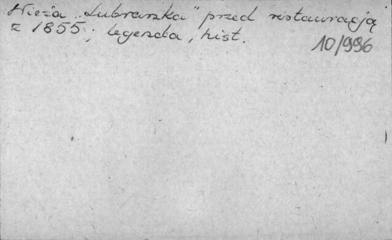 Wieża „Lubrańska" przed restauracją
z 1855; legenda, hist.
10/996